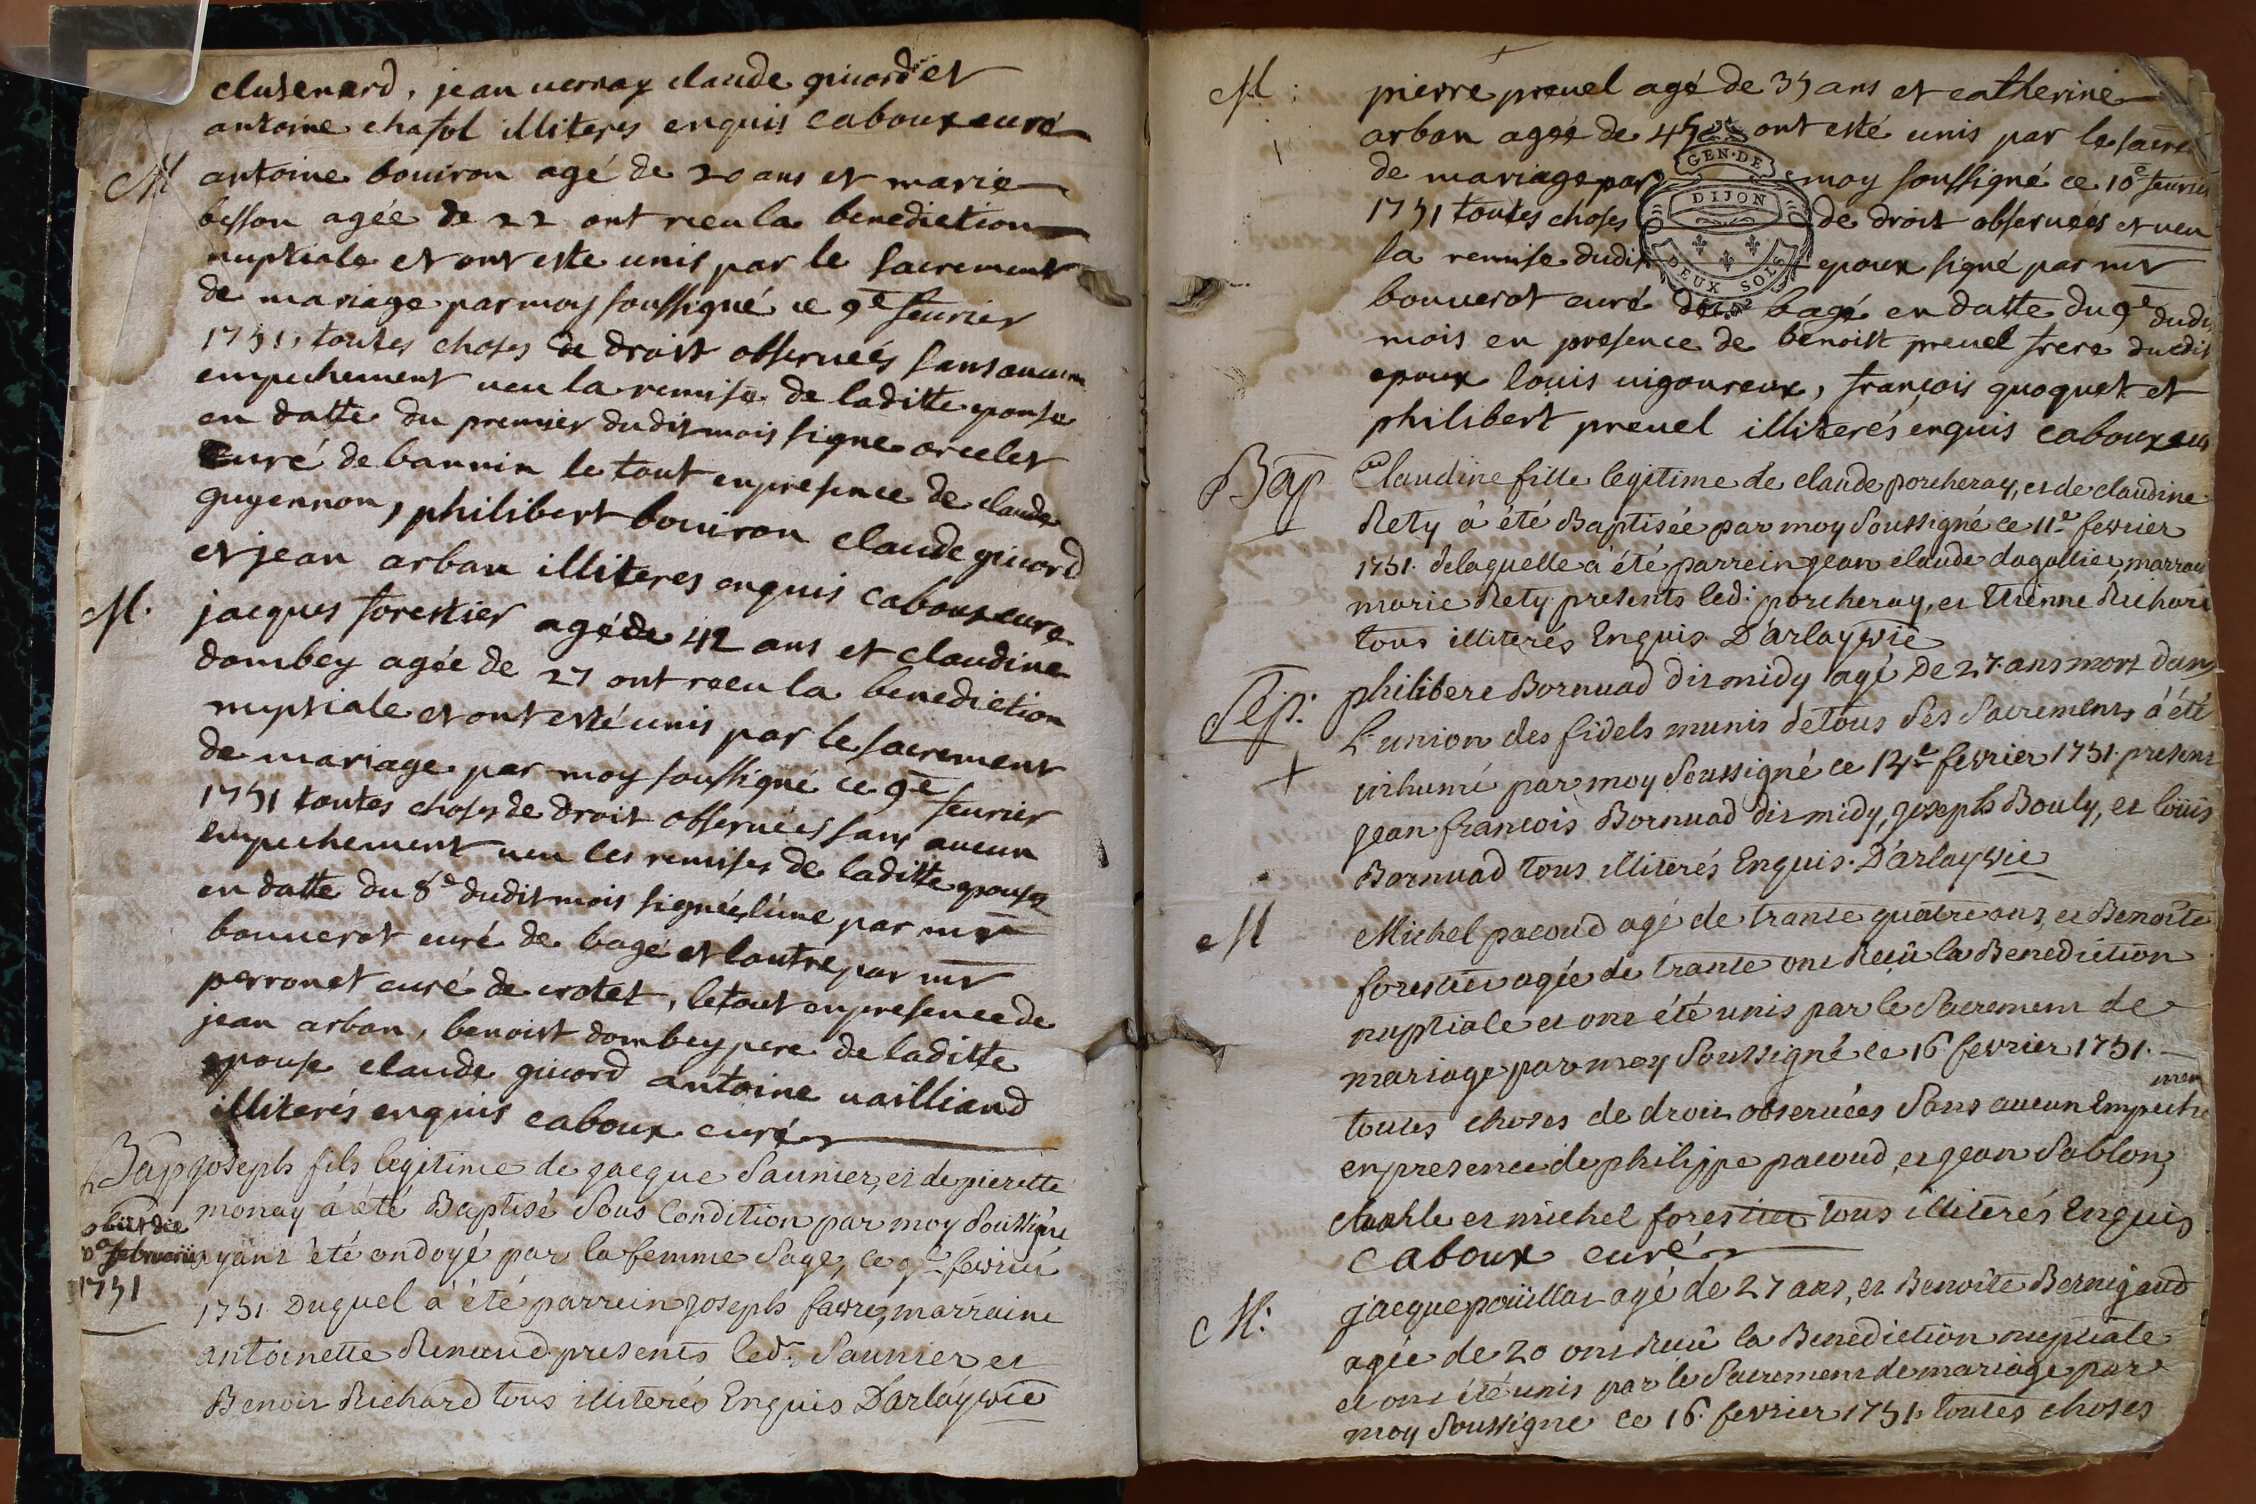 clusenard, jean vernay claude guicord et
antoine chasol illiteres enquis caboux curé
M antoine bouiron agé de 20 ans et marie
besson agée de 22 ont receu la benediction
nuptiale et ont este unis par le sacrement
de mariage par moy soussigné ce 9e feurier
1751, toutes choses de droit obseruées sans aucun
empechement ueu la remise de laditte epouse
en datte du premier dudit mois signe orcelet
curé de bannin le tout en presence de claude
guyennon, philibert bouiron claude guicord
et jean arban illiteres enquis caboux curé
M. jacques forestier agé de 42 ans et claudine
dombey agée de 27 ont receu la benediction
nuptiale et ont esté unis par le sacrement
de mariage par moy soussigné ce 9e feurier
1751 toutes choses de droit obseruées sans aucun
empechement ueu les remises de laditte epouse
en datte du 8e dudit mois signées lune par mr
bouuerot curé de bagé et lautre par mr
perronet curé de crotet, le tout en presence de
jean arban, benoist dombey pere de laditte
epouse claude guicord antoine uailliand
illiterés enquis caboux curé
Bap Joseph fils legitime de jacque Saunier, et de pierette
monay a été Baptisé Sous Condition par moy Soussigné
obiit die
februarii
1751
ayant été ondoyé par la femme Sage, ce 9e fevrier
1751. Duquel a été parrein Joseph favre, marraine
antoinette Renaud presents led. Saunier et
Benoit Richard tous illiterés Enquis D'arlaÿ vic
M. pierre preuel agé de 35 ans et catherine
arban agée de 45 ont esté unis par le sacre
de mariage par moy soussigné ce 10e feurier
1751 toutes choses de droit obseruées et ueu
la remise dudit epoux signé par mr
bouuerot curé de bagé en datte du 9e dudit
mois en presence de benoist preuel frere dudit
epoux louis uigoureux, françois quoquet et
philibert preuel illiterés enquis caboux cur
GEN. DE
DIJON
DEUX SOLS
Bap Claudine fille legitime de claude porcheray, et de claudine
Rety a été Baptisée par moy Soussigné ce 11e fevrier
1751. de laquelle a été parrein jean claude dagallier, marrain
marie Rety presents led. porcheray, et Etienne Richard
tous illiterés Enquis D'arlaÿ vic
Sep. philibert Bornuad dit midy agé De 27 ans mort dans
L'union des fidels munis de tous Ses Sacrements a été
inhumé par moy Soussigné ce 12e fevrier 1751. present
jean francois Bornuad dit midy, joseph Bouly, et loüis
Bornuad tous illiterés Enquis. D'arlaÿ vic
M Michel pacoud agé de trante quatre ans, et Benoite
forestier agée de trante ont Reçû la Benediction
nuptiale et ont été unis par le Sacrement de
mariage par moy Soussigné ce 16 fevrier 1751.
toutes choses de droit obseruées Sans aucun Empeche
men
en presence de philippe pacoud, et jean Sablon,
charle et michel forestier tous illiterés Enquis
caboux curé
M. jacque poüillat agé de 27 ans, et Benoite Bernigaud
agée de 20 ont Reçû la Benediction nuptiale
et ont été unis par le Sacrement de mariage par
moy Soussigne ce 16. fevrier 1751. toutes choses